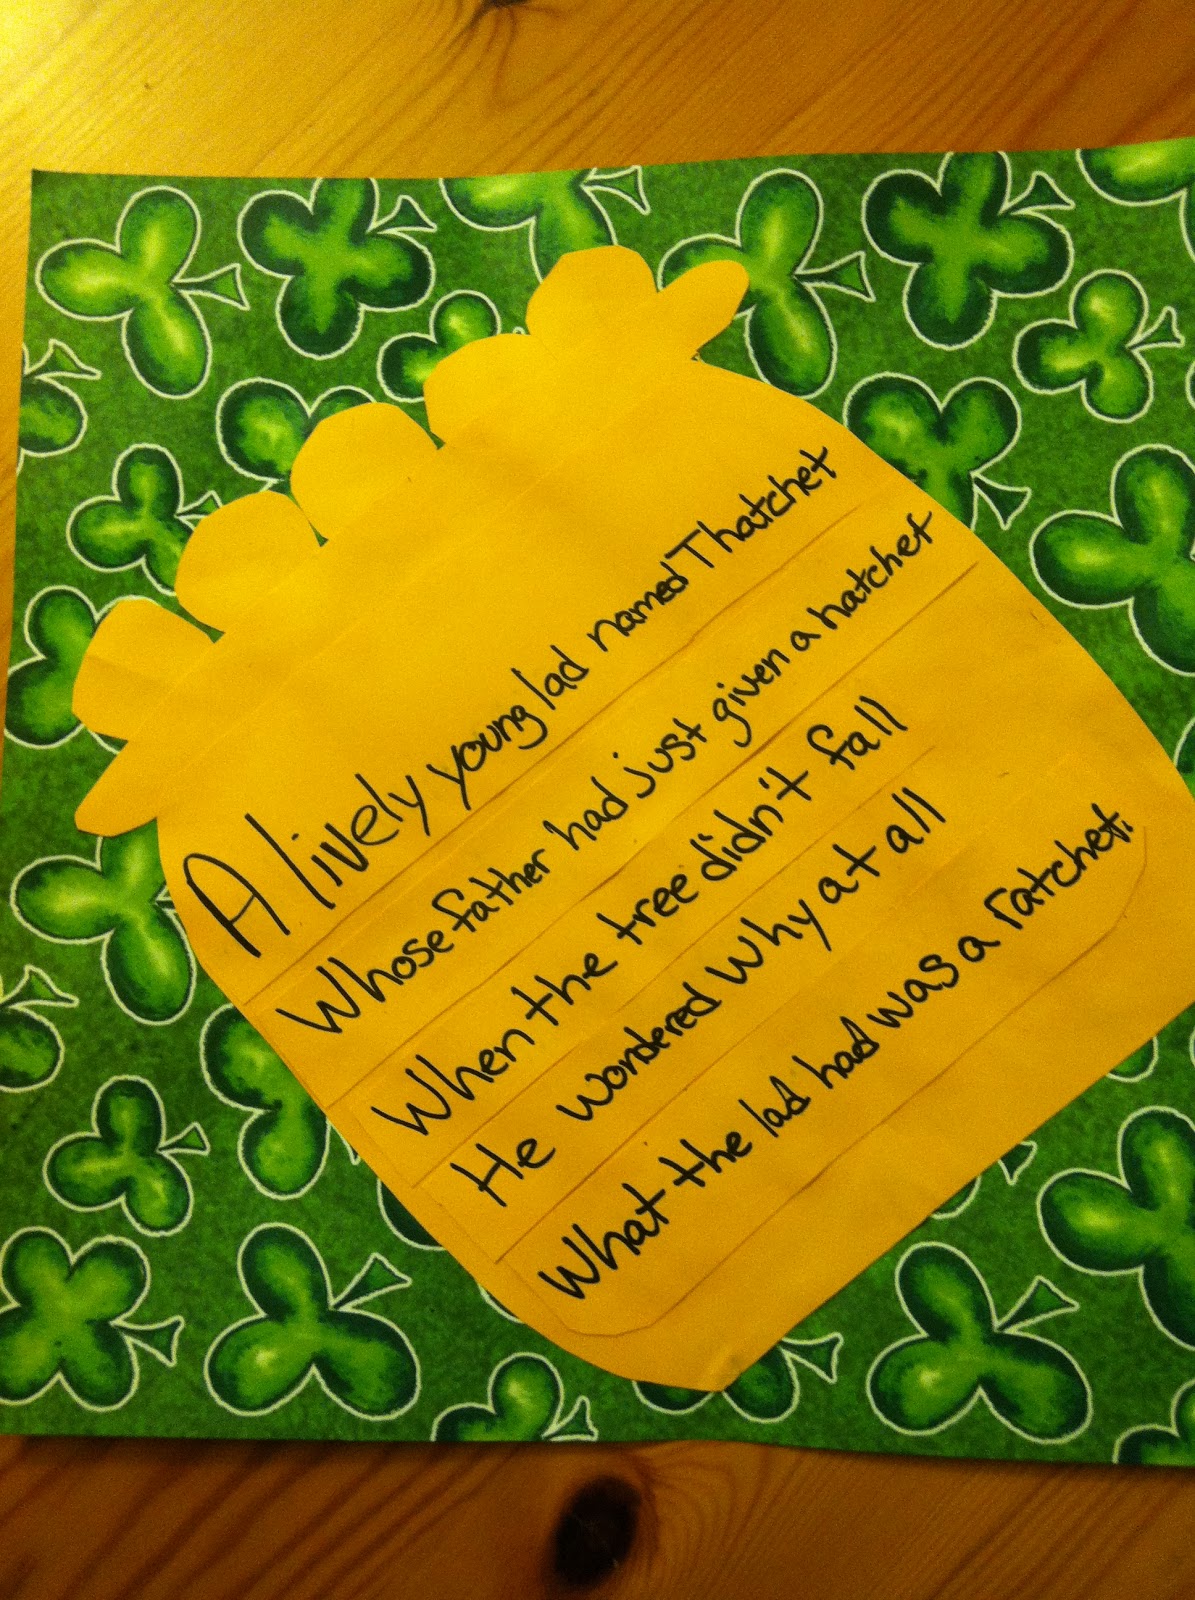 A lively young lad named Thatchet
Whose father had just given a hatchet
When the tree didn't fall
He wondered Why at all
What the lad had was a ratchet.